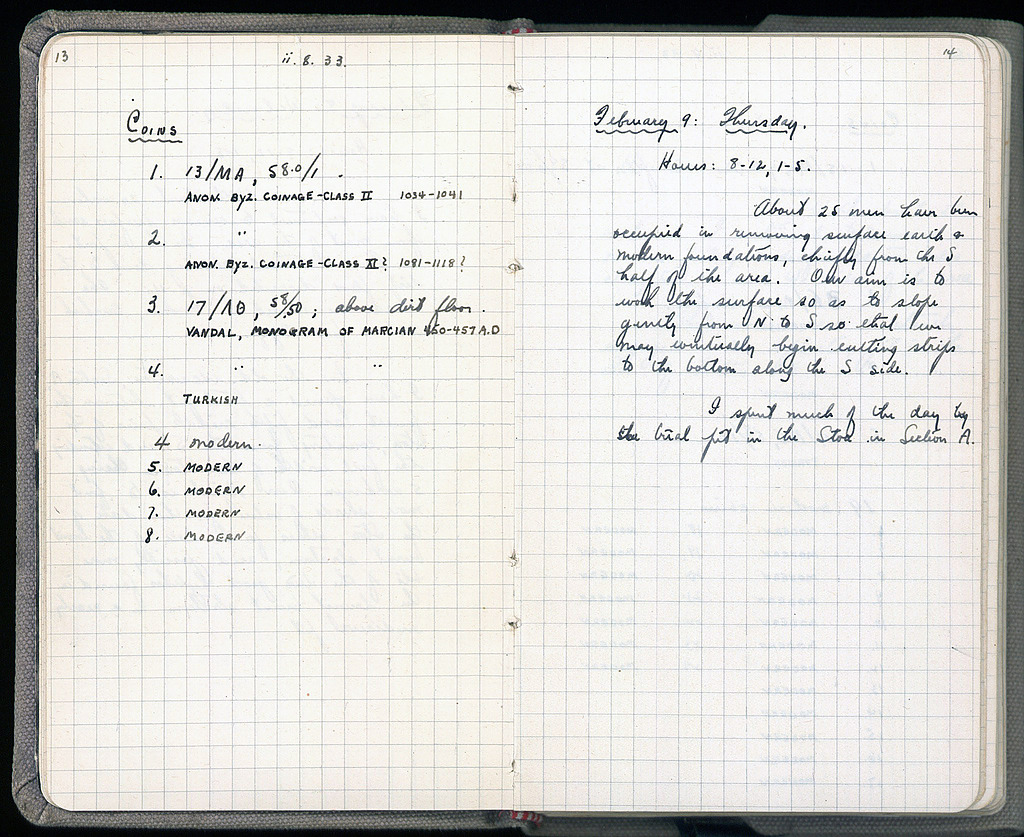 13
ii. 8. 33.
COINS
1. 13/MA, 58.0/1.
ANON. BYZ. COINAGE-CLASS II 1034-1041
2. "
ANON. BYZ. COINAGE-CLASS XI? 1081-1118?
3. 17/ΛΘ, 58/50; above dirt floor.
VANDAL, MONOGRAM OF MARCIAN 450-457 A.D
4. " "
TURKISH
4 modern.
5. MODERN
6. MODERN
7. MODERN
8. MODERN
14
February 9: Thursday.
Hours: 8-12, 1-5.
About 25 men have been
occupied in removing surface earth &
modern foundations, chiefly from the S
half of the area. Our aim is to
work the surface so as to slope
gently from N to S so that we
may eventually begin cutting strips
to the bottom along the S side.
I spent much of the day by
the trial pit in the Stoa in Section A.